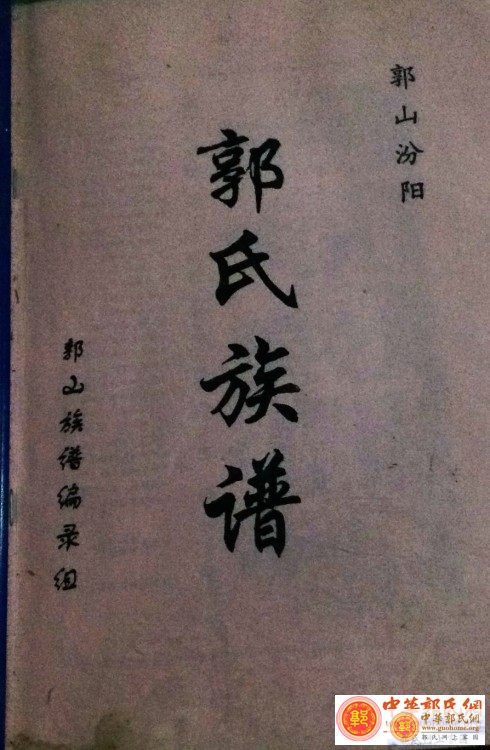 郭山汾阳
郭氏族谱
郭山族谱编录组
中華郭氏網
中華郭氏網
www.guohome.org
郭氏网上家园